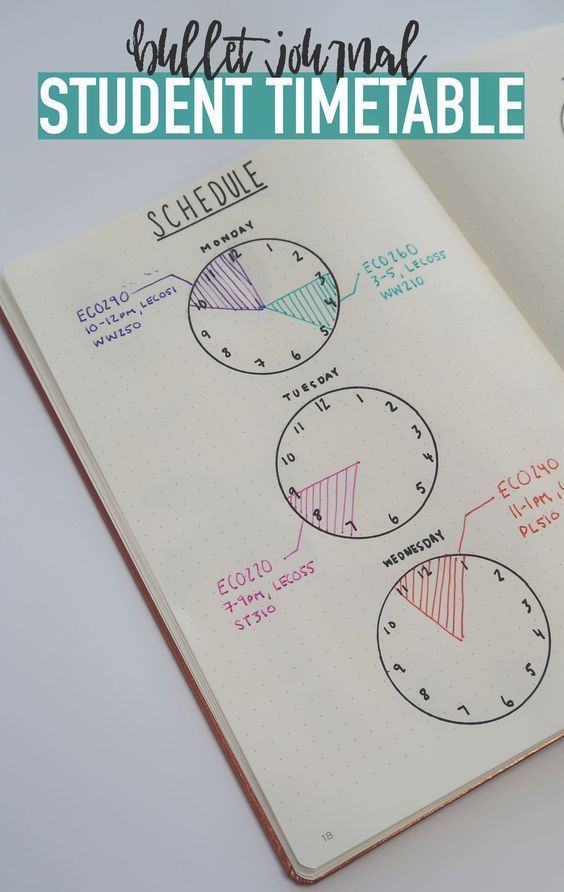 bullet journal
STUDENT TIMETABLE
SCHEDULE
MONDAY
12 1 2 3 4 5 6 7 8 9 10 11
ECO290
10-12PM, LEC051
WW250
ECO260
3-5, LEC055
WW210
TUESDAY
12 1 2 3 4 5 6 7 8 9 10 11
ECO220
7-9PM, LEC055
ST310
WEDNESDAY
12 1 2 3 4 5 6 7 8 9 10 11
ECO240
11-1PM,
PL510
18